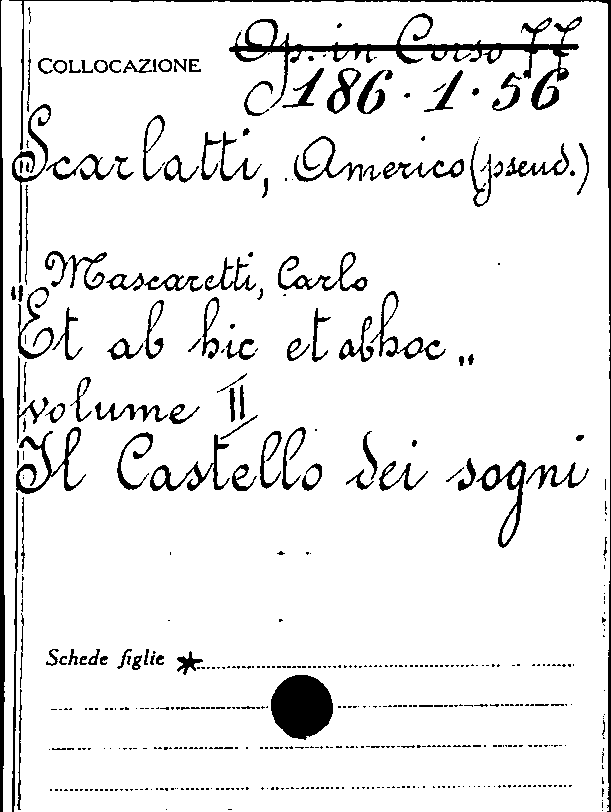 Op. in Corso 77
COLLOCAZIONE
186·1·56
Scarlatti, Americo (pseud.)
Mascaretti, Carlo
"Et ab hic et abhoc„
volume II
Il Castello dei sogni
Schede figlie *